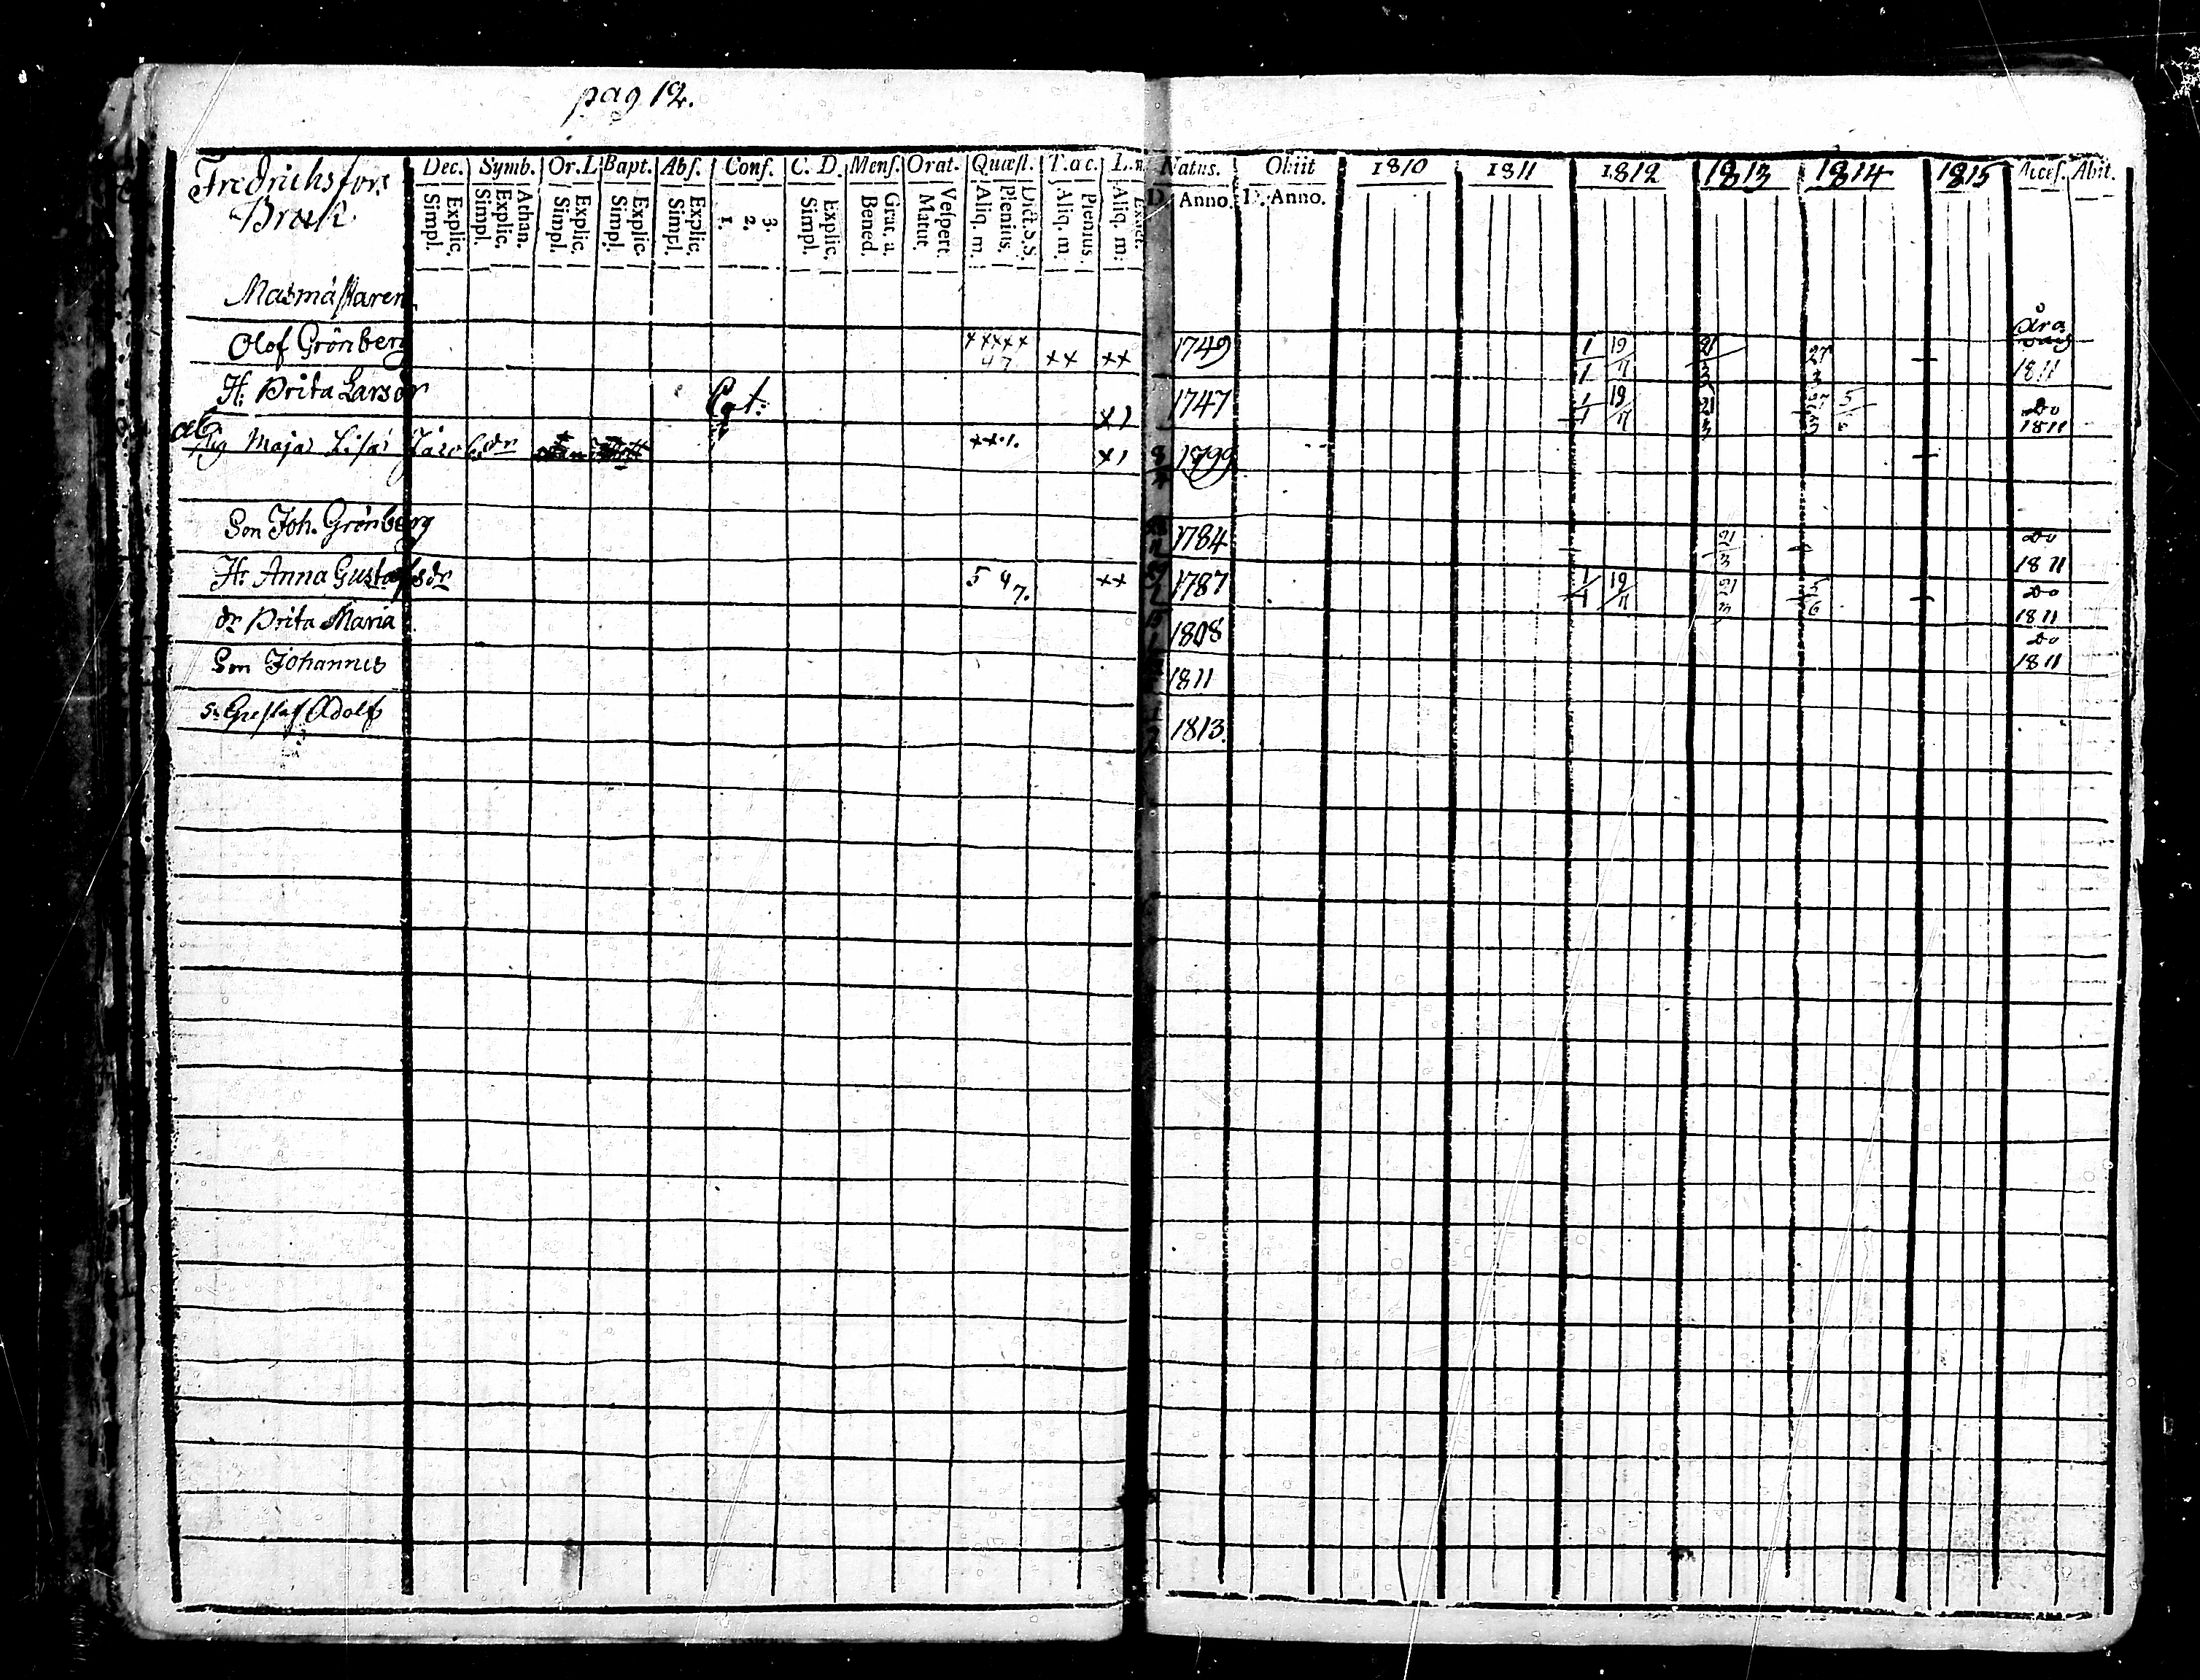 pag 12.
Fredrichsfors
Bruk
Dec. Symb. Or. L. Bapt. Abſ. Conf. C. D. Menſ. Orat. Quæſt. T. ac. L. Natus. Obiit 1810 1811 1812 1813 1814 1815 Acceſ. Abit.
Explic. Simpl. Athan. Explic. Simpl. Explic. Simpl. Explic. Simpl. Explic. Simpl. 3. 2. 1. Explic. Simpl. Grat. a. Bened. Veſpert. Matut. Dict. S. S. Plenius. Aliq. m. Plenius Aliq. m. Exact. Aliq. m. D. Anno. D. Anno.
Masmästaren
Olof Grönberg ×××××  4 7 ×× ×× 1749 1/1 19/7 21/3 27/3 1811
H: Brita Larsdr ×1 1747 1/1 19/7 21/3 27/3 5/6 Do 1811
Maja Lisa Jacobsdr ××1. ×1 8 1799
Son Joh. Grönberg 1784 21/3 Do 1811
H: Anna Gustafsdr 5 4 7. ×× 1787 1/1 19/7 21/3 5/6 Do 1811
dr Brita Maria 1808 Do 1811
Son Johannes 1811
s. Gustaf Adolf 1813.